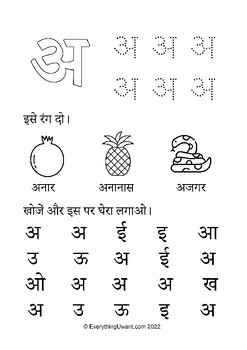 अ अ अ अ
अ अ अ
इसे रंग दो।
अनार अनानास अजगर
खोजें और इस पर घेरा लगाओ।
अ अ ई इ आ
उ ऊ अ ई अ
ओ अ अ अ ख
अ उ ऊ इ अ
© EverythingUwant.com 2022